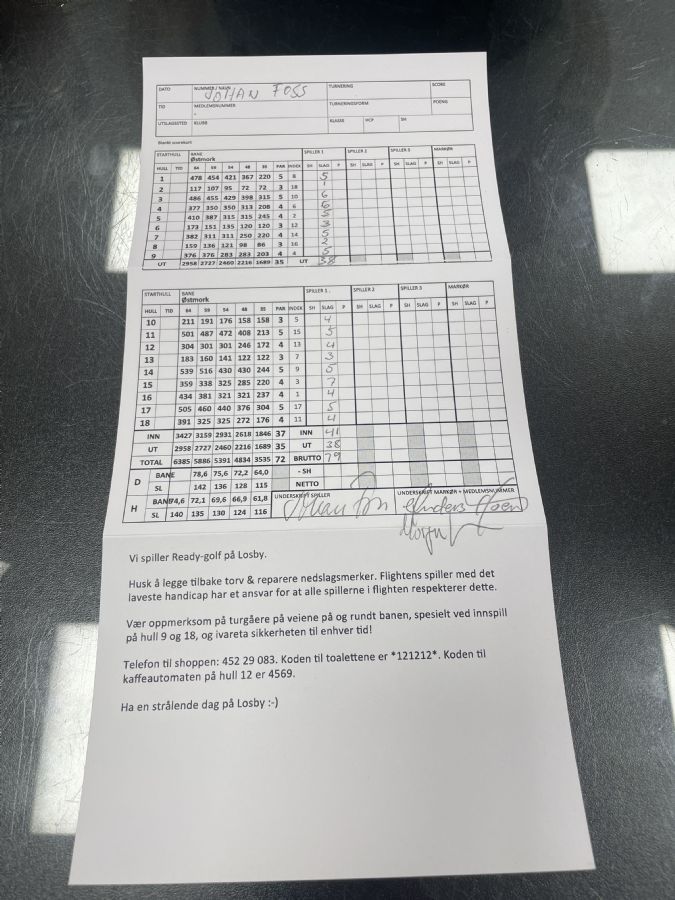 DATO NUMMER / NAVN JOHAN FOSS TURNERING SCORE
TID MEDLEMSNUMMER TURNERINGSFORM POENG
UTSLAGSSTED KLUBB KLASSE HCP SH
Blankt scorekort
STARTHULL BANE SPILLER 1 SPILLER 2 SPILLER 3 MARKØR
Østmork
HULL TID 64 59 54 48 35 PAR INDEX SH SLAG P SH SLAG P SH SLAG P SH SLAG P
1 478 454 421 367 220 5 8 5
2 117 107 95 72 72 3 18 1
3 486 455 429 398 315 5 10 6
4 377 350 350 313 208 4 6 6
5 410 387 315 315 245 4 2 5
6 173 151 135 120 120 3 12 3
7 382 311 311 250 220 4 14 5
8 159 136 121 98 86 3 16 2
9 376 376 283 283 203 4 4 5
UT 2958 2727 2460 2216 1689 35 UT 38
STARTHULL BANE SPILLER 1 SPILLER 2 SPILLER 3 MARKØR
Østmork
HULL TID 64 59 54 48 35 PAR INDEX SH SLAG P SH SLAG P SH SLAG P SH SLAG P
10 211 191 176 158 158 3 5 4
11 501 487 472 408 213 5 15 5
12 304 301 301 246 172 4 13 4
13 183 160 141 122 122 3 7 3
14 539 516 430 430 244 5 9 5
15 359 338 325 285 220 4 3 7
16 434 381 321 321 237 4 1 4
17 505 460 440 376 304 5 17 5
18 391 325 325 272 176 4 11 4
INN 3427 3159 2931 2618 1846 37 INN 41
UT 2958 2727 2460 2216 1689 35 UT 38
TOTAL 6385 5886 5391 4834 3535 72 BRUTTO 79
D BANE 78,6 75,6 72,2 64,0 - SH
SL 142 136 128 115 NETTO
H BANE 74,6 72,1 69,6 66,9 61,8 UNDERSKRIFT SPILLER UNDERSKRIFT MARKØR + MEDLEMSNUMMER
SL 140 135 130 124 116
Vi spiller Ready-golf på Losby.
Husk å legge tilbake torv & reparere nedslagsmerker. Flightens spiller med det
laveste handicap har et ansvar for at alle spillerne i flighten respekterer dette.
Vær oppmerksom på turgåere på veiene på og rundt banen, spesielt ved innspill
på hull 9 og 18, og ivareta sikkerheten til enhver tid!
Telefon til shoppen: 452 29 083. Koden til toalettene er *121212*. Koden til
kaffeautomaten på hull 12 er 4569.
Ha en strålende dag på Losby :-)